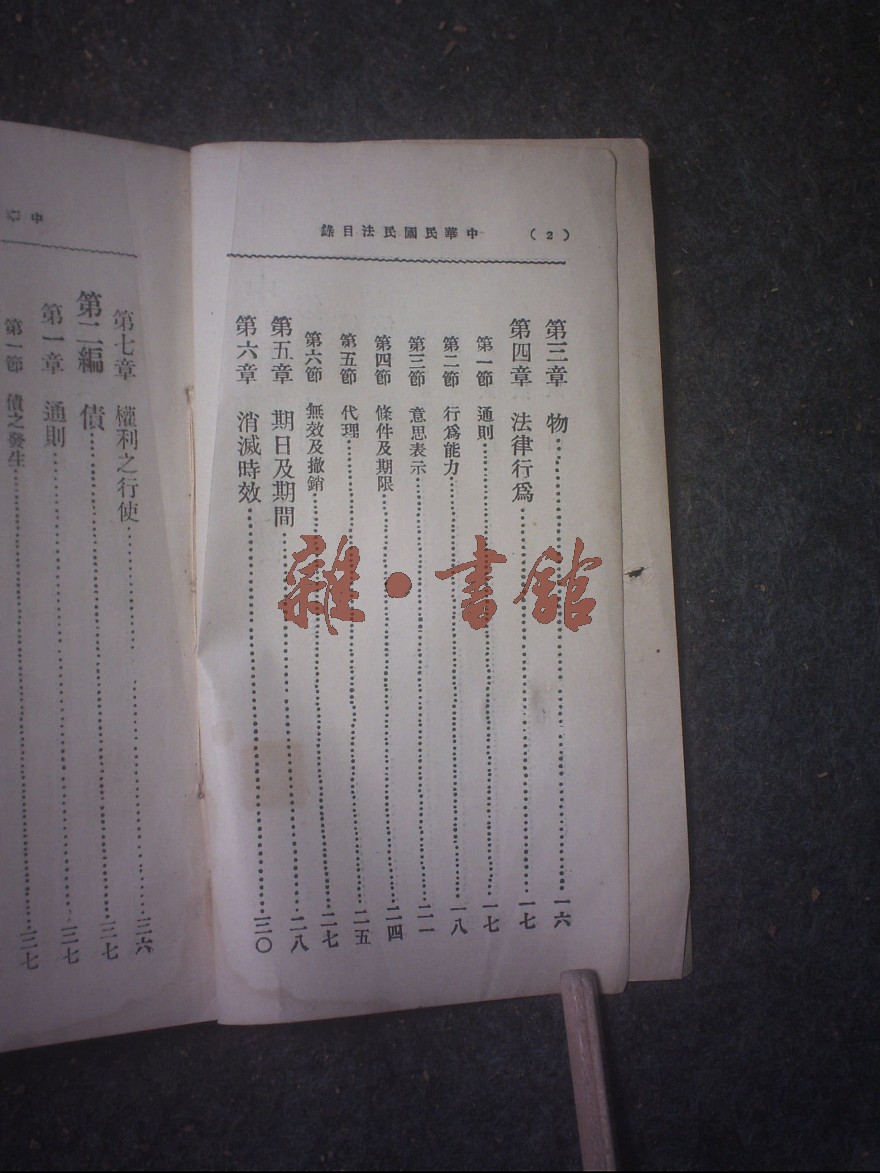 (2) 中華民國民法目錄
第三章 物……一六
第四章 法律行爲……一七
第一節 通則……一七
第二節 行爲能力……一八
第三節 意思表示……二一
第四節 條件及期限……二四
第五節 代理……二五
第六節 無效及撤銷……二七
第五章 期日及期間……二八
第六章 消滅時效……三〇
中
第七章 權利之行使……三六
第二編 債……三七
第一章 通則……三七
第一節 債之發生……三七
雜·書館